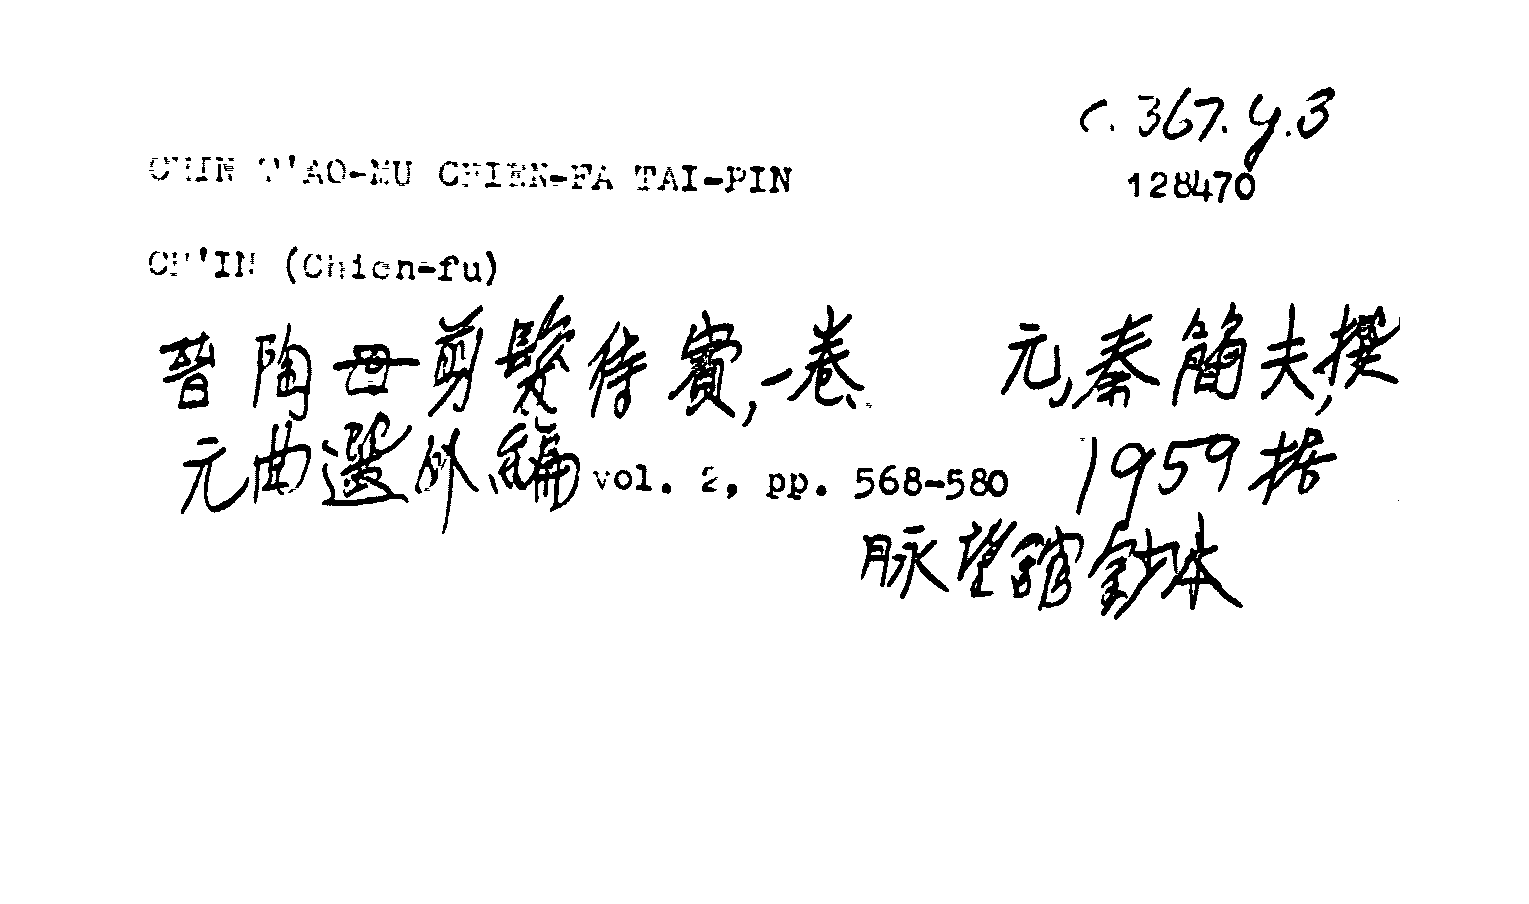 C.367.y.3
CHIN T'AO-MU CHIEN-FA TAI-PIN
128470
CH'IN (Chien-fu)
晋陶母剪髮待賓,一卷. 元,秦簡夫,撰
元曲選外編 vol. 2, pp. 568-580 1959据
脉望館鈔本